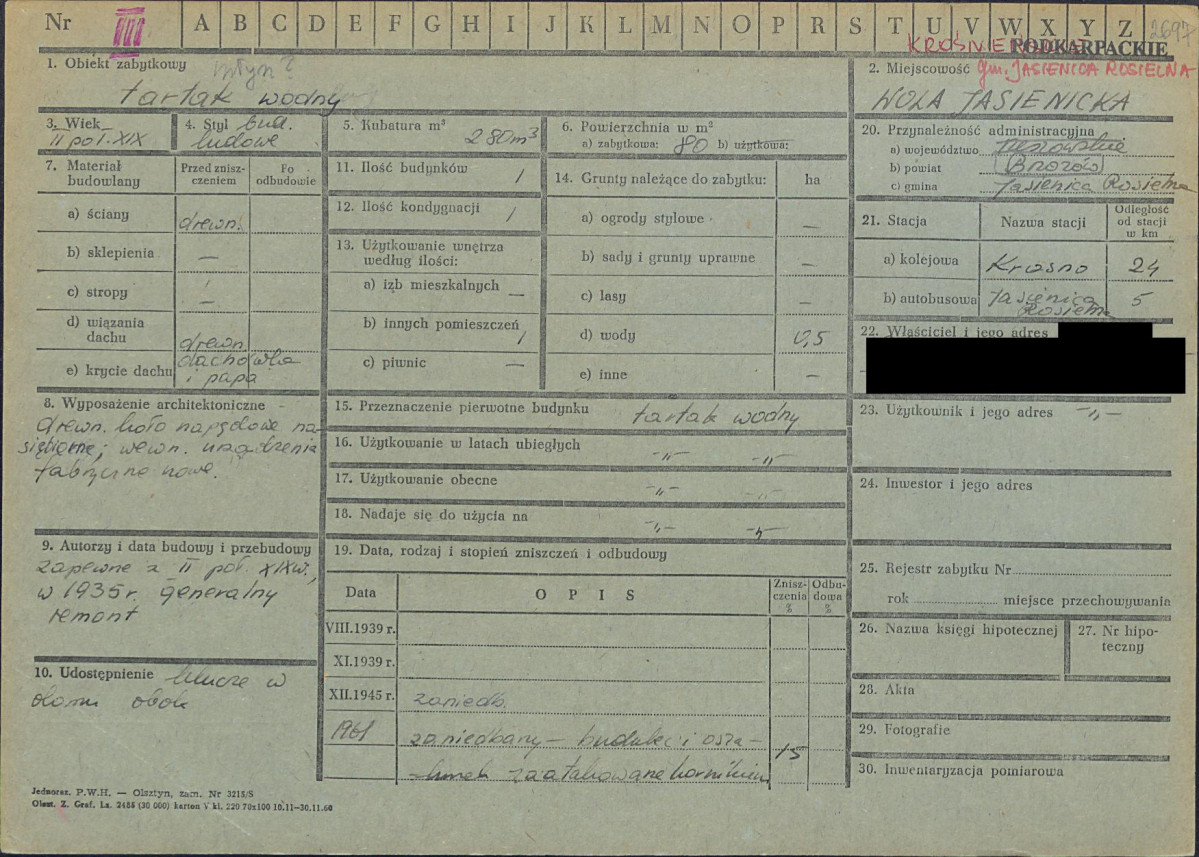 Nr III A B C D E F G H I J K L M N O P R S T U V W X Y Z 2697
KROŚNIE PODKARPACKIE
1. Obiekt zabytkowy młyn?
tartak wodny
2. Miejscowość gm. JASIENICA ROSIELNA
WOLA JASIENICKA
3. Wiek
II poł. XIX
4. Styl bud.
ludowe
5. Kubatura m³
280m³
6. Powierzchnia w m²
a) zabytkowa: 80 b) użytkowa:
20. Przynależność administracyjna
a) województwo rzeszowskie
b) powiat Brzozów
c) gmina Jasienica Rosielna
7. Materiał budowlany
Przed zniszczeniem
Po odbudowie
a) ściany drewn.
b) sklepienia —
c) stropy —
d) wiązania dachu drewn
e) krycie dachu dachówka i papa
11. Ilość budynków 1
12. Ilość kondygnacji 1
13. Użytkowanie wnętrza
według ilości:
a) izb mieszkalnych —
b) innych pomieszczeń 1
c) piwnic —
14. Grunty należące do zabytku: ha
a) ogrody stylowe —
b) sady i grunty uprawne —
c) lasy —
d) wody 0,5
e) inne —
21. Stacja Nazwa stacji Odległość od stacji w km
a) kolejowa Krosno 24
b) autobusowa Jasienica Rosielna 5
22. Właściciel i jego adres
8. Wyposażenie architektoniczne -
drewn. koło napędowe na-
siębierne; wewn. urządzenia
fabryczno nowe.
15. Przeznaczenie pierwotne budynku tartak wodny
16. Użytkowanie w latach ubiegłych -"- -"-
17. Użytkowanie obecne -"- -"-
18. Nadaje się do użycia na -"- -"-
23. Użytkownik i jego adres -"-
24. Inwestor i jego adres
9. Autorzy i data budowy i przebudowy
zapewne z II poł. XIXw.,
w 1935r. generalny
remont
10. Udostępnienie klucze w
domu obok
19. Data, rodzaj i stopień zniszczeń i odbudowy
Data OPIS Zniszczenia % Odbudowa %
VIII.1939 r.
XI.1939 r.
XII.1945 r. zaniedb.
1961 zaniedbany — budulec i
zaatakowane kornikiem 15
25. Rejestr zabytku Nr
rok miejsce przechowywania
26. Nazwa księgi hipotecznej
27. Nr hipoteczny
28. Akta
29. Fotografie
30. Inwentaryzacja pomiarowa
Jednoraz. P.W.H. — Olsztyn, zam. Nr 3215/S
Olszt. Z. Graf. Lz. 2485 (30 000) karton V kl. 220 70x100 10.11—30.11.60